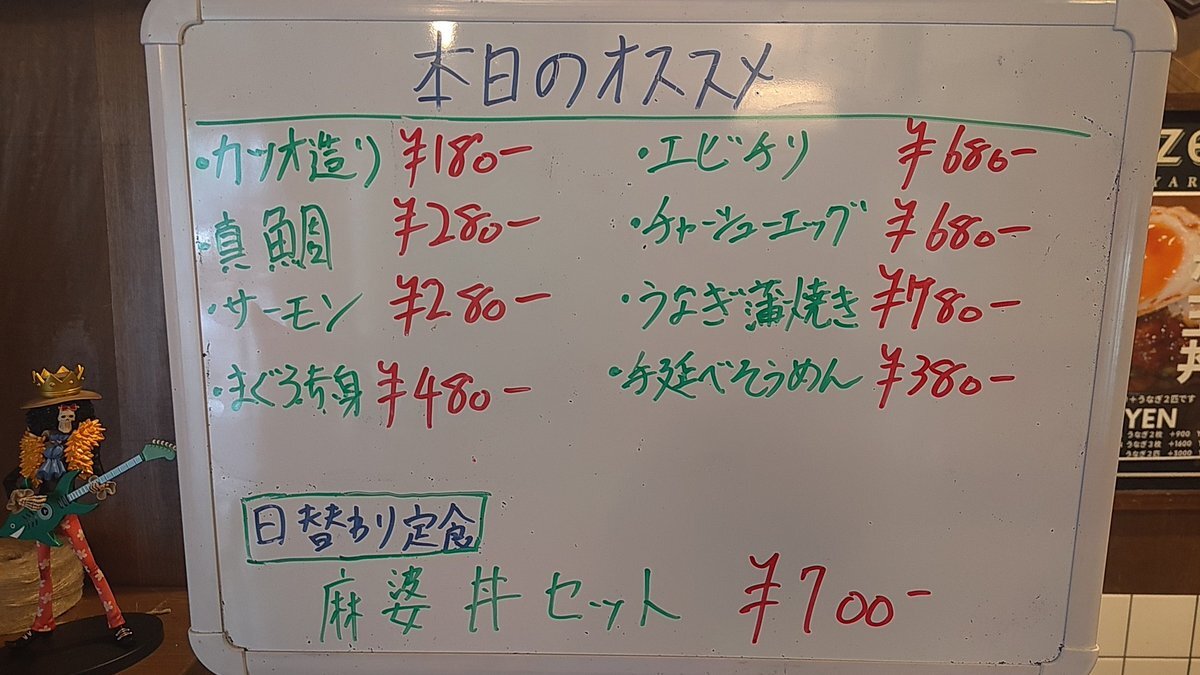 本日のオススメ
・カツオ造り ¥180-
・真鯛 ¥280-
・サーモン ¥280-
・まぐろ赤身 ¥480-
・エビチリ ¥680-
・チャーシューエッグ ¥680-
・うなぎ蒲焼き ¥780-
・手延べそうめん ¥380-
日替わり定食
麻婆丼セット ¥700-
丼
YEN
うなぎ2枚 +900
うなぎ3枚 +1600
うなぎ2匹 +3000